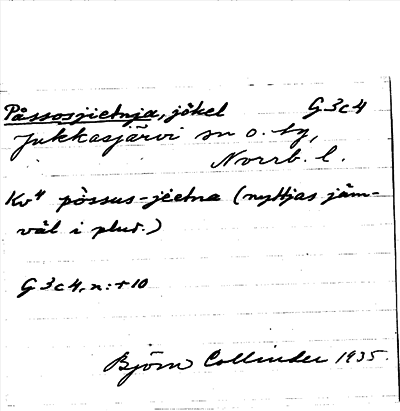 Påssosjietnja, jökel G 3c4
Jukkasjärvi sn o. tg,
Norrb. l.
Kv4 påssus-jietna (nyttjas jäm-
väl i plur.)
G 3c4, n:r 10
Björn Collinder 1935.